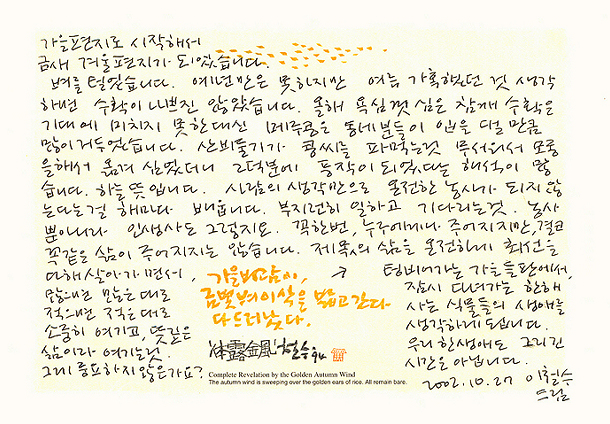 가을편지로 시작해서
금새 겨울편지가 되었습니다.
벼를 털었습니다. 예년만은 못하지만 여름 가혹했던 것 생각
하면 수확이 나쁘진 않았습니다. 올해 욕심껏 심은 참깨 수확은
기대에 미치지 못한대신 메주콩은 동네분들이 입을 댈 만큼
많이 거두었습니다. 산비둘기가 콩씨를 파먹는것 무서워서 모종
을해서 옮겨 심었더니 그덕분에 풍작이 되었다는 해석이 많
습니다. 하늘 뜻입니다. 사람의 생각만으로 온전한 농사가 되지 않
는다는걸 해마다 배웁니다. 부지런히 일하고 기다리는것. 농사
뿐이니라 인생사도 그렇지요. 꼭한번, 누구에게나 주어지지만, 결코
똑같은 삶이 주어지지는 않습니다. 제몫의 삶을 온전하게 최선을
다해 살아가면서,
많으면 많은대로
적으면 적은대로
소중히 여기고, 뜻깊은
삶이라 여기는것.
그게 중요하지 않은가요?
가을바람이,
금빛 벼이삭을 밟고 간다
다 드러났다.
'体露金風' 철수 94
Complete Revelation by the Golden Autumn Wind
The autumn wind is sweeping over the golden ears of rice. All remain bare.
텅비어가는 가을들판에서,
잠시 다녀가는 한해
사는 식물들의 생애를
생각하게 됩니다.
우리 한생애도 그리 긴
시간은 아닙니다.
2002.10.27 이철수
드림